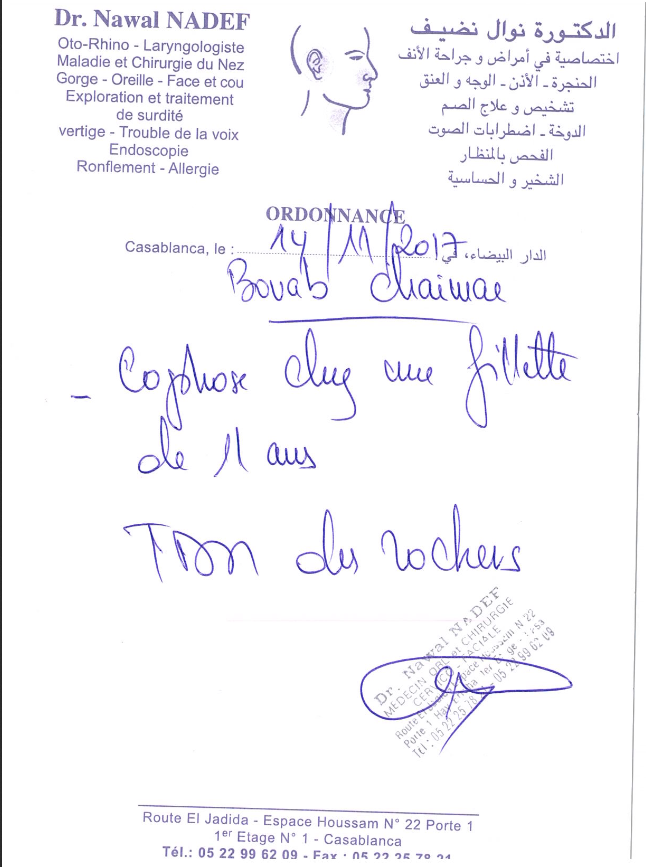 Dr. Nawal NADEF
Oto-Rhino - Laryngologiste
Maladie et Chirurgie du Nez
Gorge - Oreille - Face et cou
Exploration et traitement
de surdité
vertige - Trouble de la voix
Endoscopie
Ronflement - Allergie
الدكتورة نوال نضيف
اختصاصية في أمراض و جراحة الأنف
الحنجرة - الأذن - الوجه و العنق
تشخيص و علاج الصم
الدوخة - اضطرابات الصوت
الفحص بالمنظار
الشخير و الحساسية
ORDONNANCE
Casablanca, le : 14/11/2017 الدار البيضاء، في
Bouab Chaimae
- Cophose chez une fillette
de 11 ans
TDM des rochers
Dr. Nawal NADEF
MÉDECIN ORL et CHIRURGIE
CERVICO FACIALE
Route El Jadida Espace Houssam N 22
Porte 1
Tél : 05 22 25 78 - 05 22 99 62 09
Route El Jadida - Espace Houssam N° 22 Porte 1
1er Etage N° 1 - Casablanca
Tél.: 05 22 99 62 09 - Fax : 05 22 25 78 21